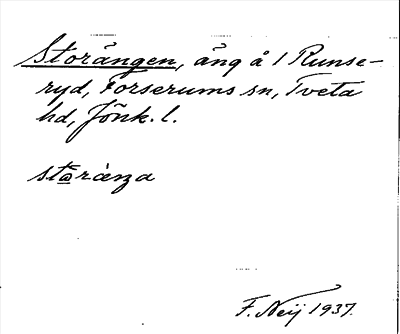 Storängen, äng å 1 Runse-
ryd, Forserums sn, Tveta
hd, Jönk. l.
storänza
F. Neij 1937.